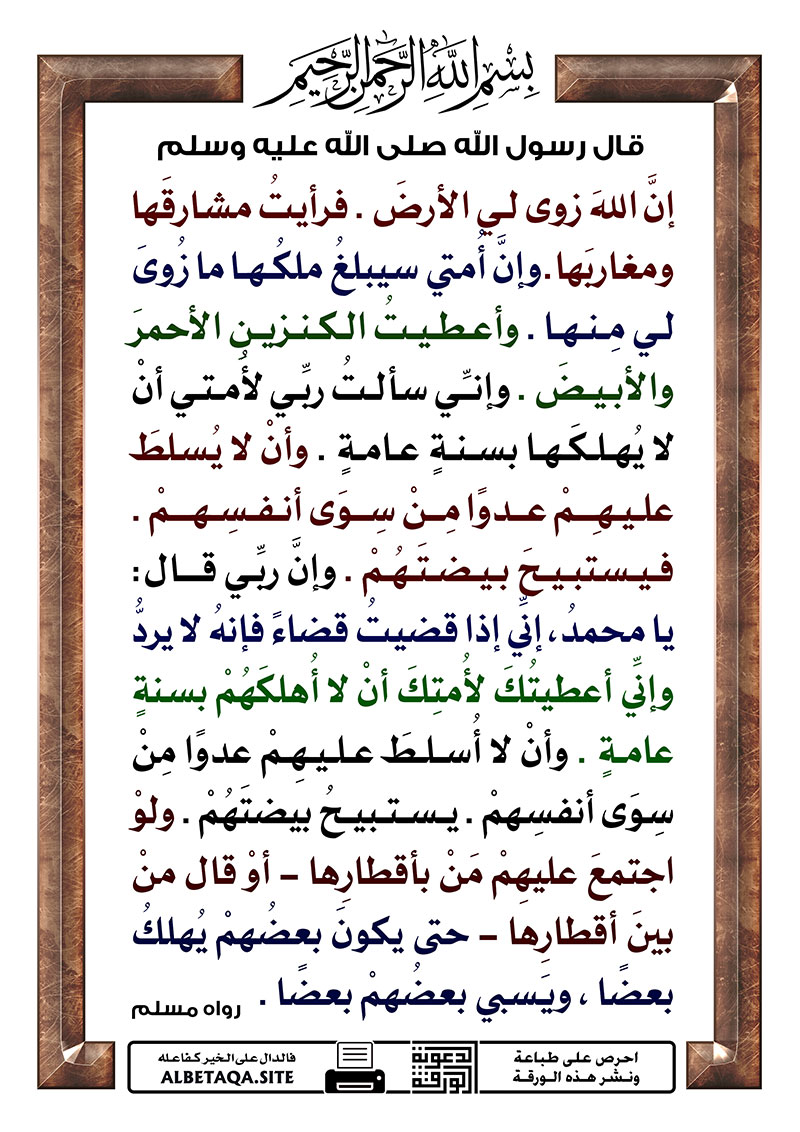 بِسْمِ اللَّهِ الرَّحْمَٰنِ الرَّحِيمِ
قال رسول الله صلى الله عليه وسلم
إنَّ اللهَ زوى لي الأرضَ . فرأيتُ مشارقَها
ومغاربَها.وإنَّ أُمتي سيبلغُ ملكُها ما زُوىَ
لي مِنها . وأعطيتُ الكنزين الأحمرَ
والأبيضَ . وإنِّي سألتُ ربِّي لأُمتي أنْ
لا يُهلكَها بسنةٍ عامةٍ . وأنْ لا يُسلطَ
عليهِمْ عدوًا مِنْ سِوَى أنفسِهمْ .
فيستبيحَ بيضتَهُمْ . وإنَّ ربِّي قال:
يا محمدُ، إنِّي إذا قضيتُ قضاءً فإنهُ لا يردُّ
وإنِّي أعطيتُكَ لأُمتِكَ أنْ لا أُهلكَهُمْ بسنةٍ
عامةٍ . وأنْ لا أُسلطَ عليهِمْ عدوًا مِنْ
سِوَى أنفسِهمْ . يستبيحُ بيضتَهُمْ . ولوْ
اجتمعَ عليهِمْ مَنْ بأقطارِها – أوْ قال منْ
بينَ أقطارِها – حتى يكونَ بعضُهمْ يُهلكُ
بعضًا ، ويَسبي بعضُهمْ بعضًا .
رواه مسلم
احرص على طباعة
ونشر هذه الورقة
الورقة الدعوية
فالدال على الخير كفاعله
ALBETAQA.SITE